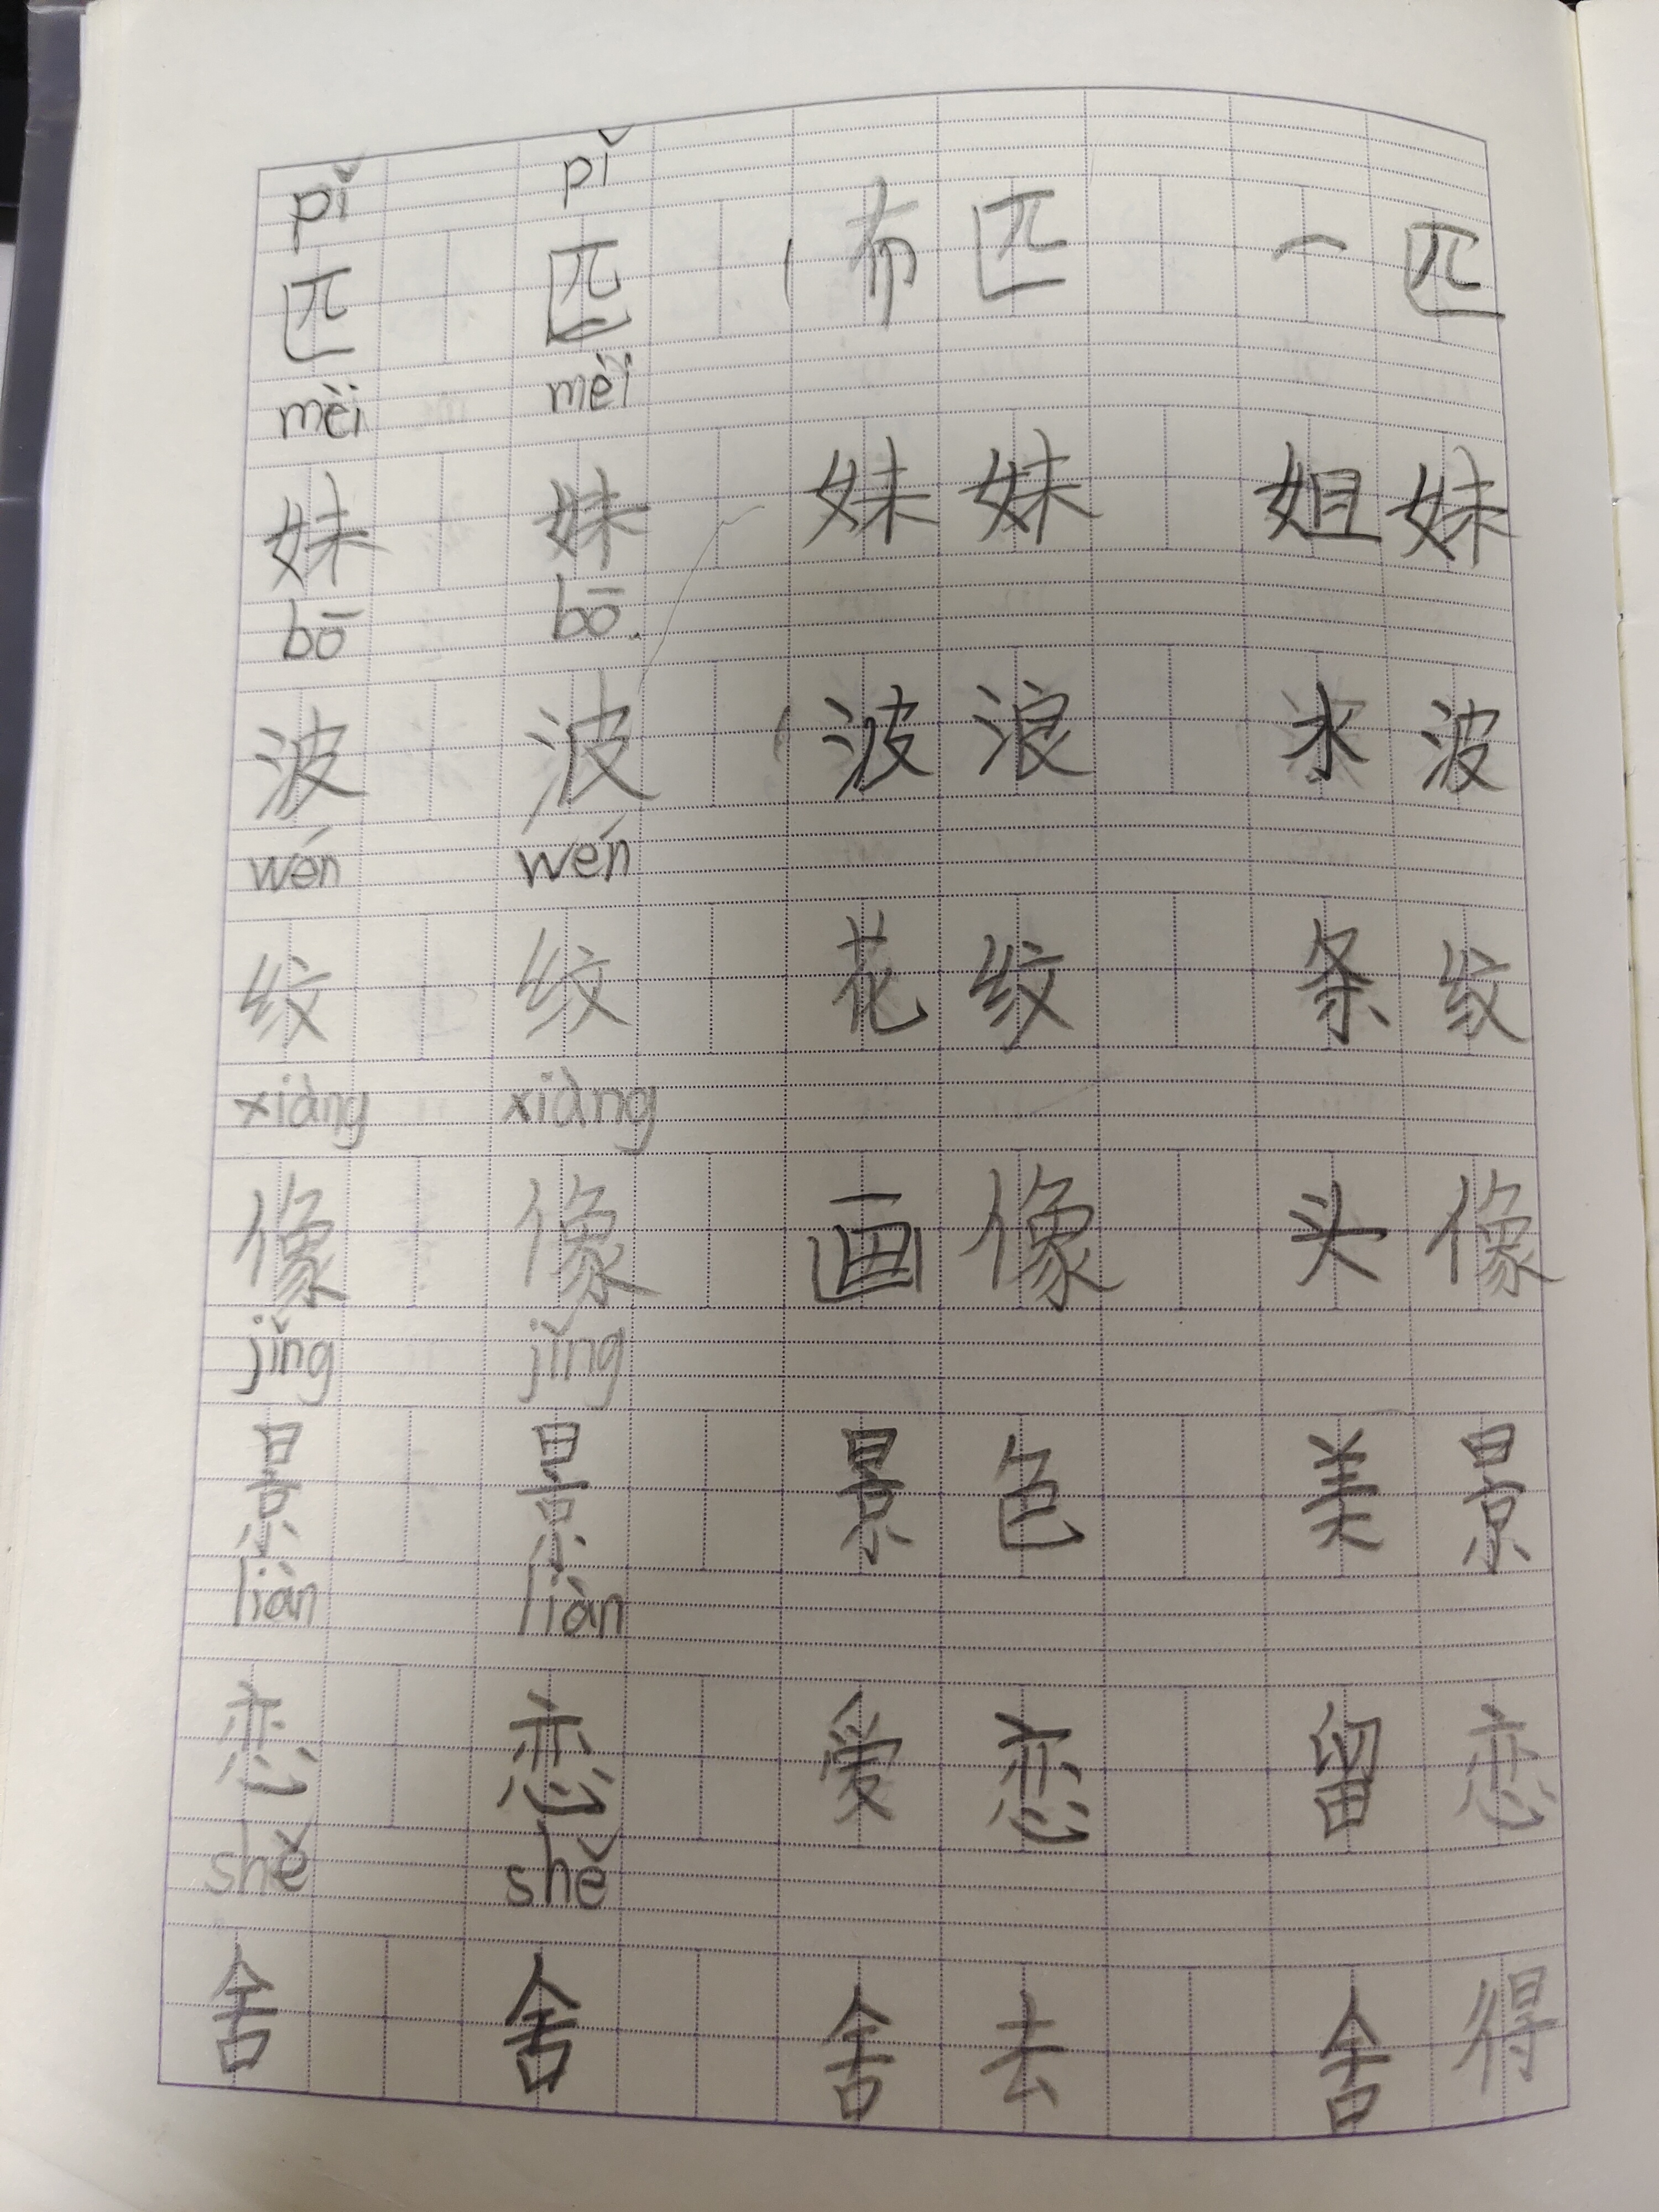 pǐ pǐ
匹 匹 布匹 一匹
mèi mèi
妹 妹 妹妹 姐妹
bō bō
波 波 波浪 水波
wén wén
纹 纹 花纹 条纹
xiàng xiàng
像 像 画像 头像
jǐng jǐng
景 景 景色 美景
liàn liàn
恋 恋 爱恋 留恋
shě shě
舍 舍 舍去 舍得